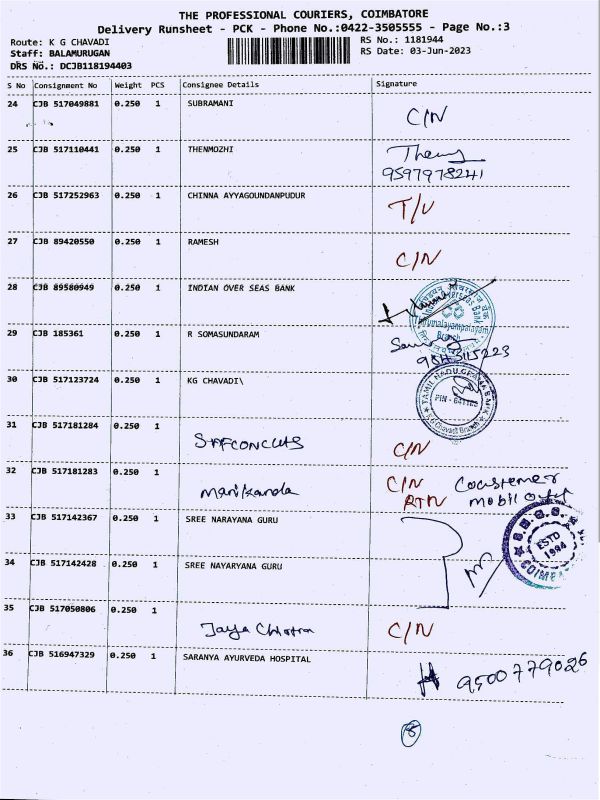 THE PROFESSIONAL COURIERS, COIMBATORE
Delivery Runsheet - PCK - Phone No.:0422-3505555 - Page No.:3
Route: K G CHAVADI
RS No.: 1181944
Staff: BALAMURUGAN
RS Date: 03-Jun-2023
DRS No.: DCJB118194403
S No Consignment No Weight PCS Consignee Details Signature
24 CJB 517049881 0.250 1 SUBRAMANI C/N
25 CJB 517110441 0.250 1 THENMOZHI
9597978241
26 CJB 517252963 0.250 1 CHINNA AYYAGOUNDANPUDUR T/U
27 CJB 89420550 0.250 1 RAMESH C/N
28 CJB 89580949 0.250 1 INDIAN OVER SEAS BANK
29 CJB 185361 0.250 1 R SOMASUNDARAM
30 CJB 517123724 0.250 1 KG CHAVADI\
TAMIL NADU GRAMA BANK
31 CJB 517181284 0.250 1 C/N
32 CJB 517181283 0.250 1 Manikanda C/N
RTN
33 CJB 517142367 0.250 1 SREE NARAYANA GURU
ESTD
1994
34 CJB 517142428 0.250 1 SREE NAYARYANA GURU
35 CJB 517050806 0.250 1 C/N
36 CJB 516947329 0.250 1 SARANYA AYURVEDA HOSPITAL 9500779026